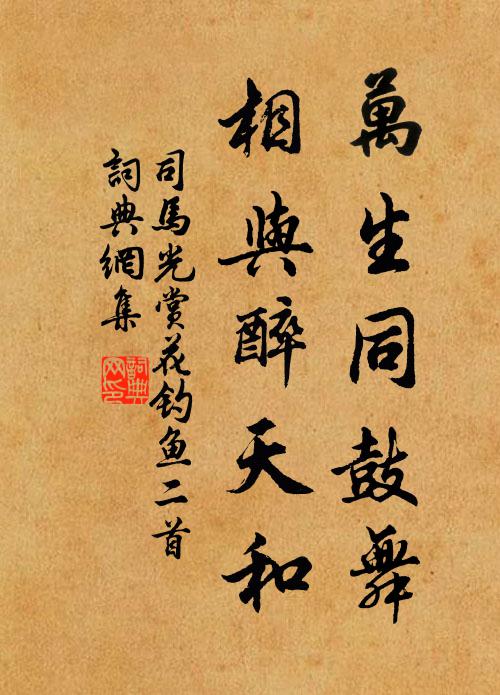 萬生同鼓舞
相與醉天和
司馬光賞花釣魚二首
詞典網集
詞典网印